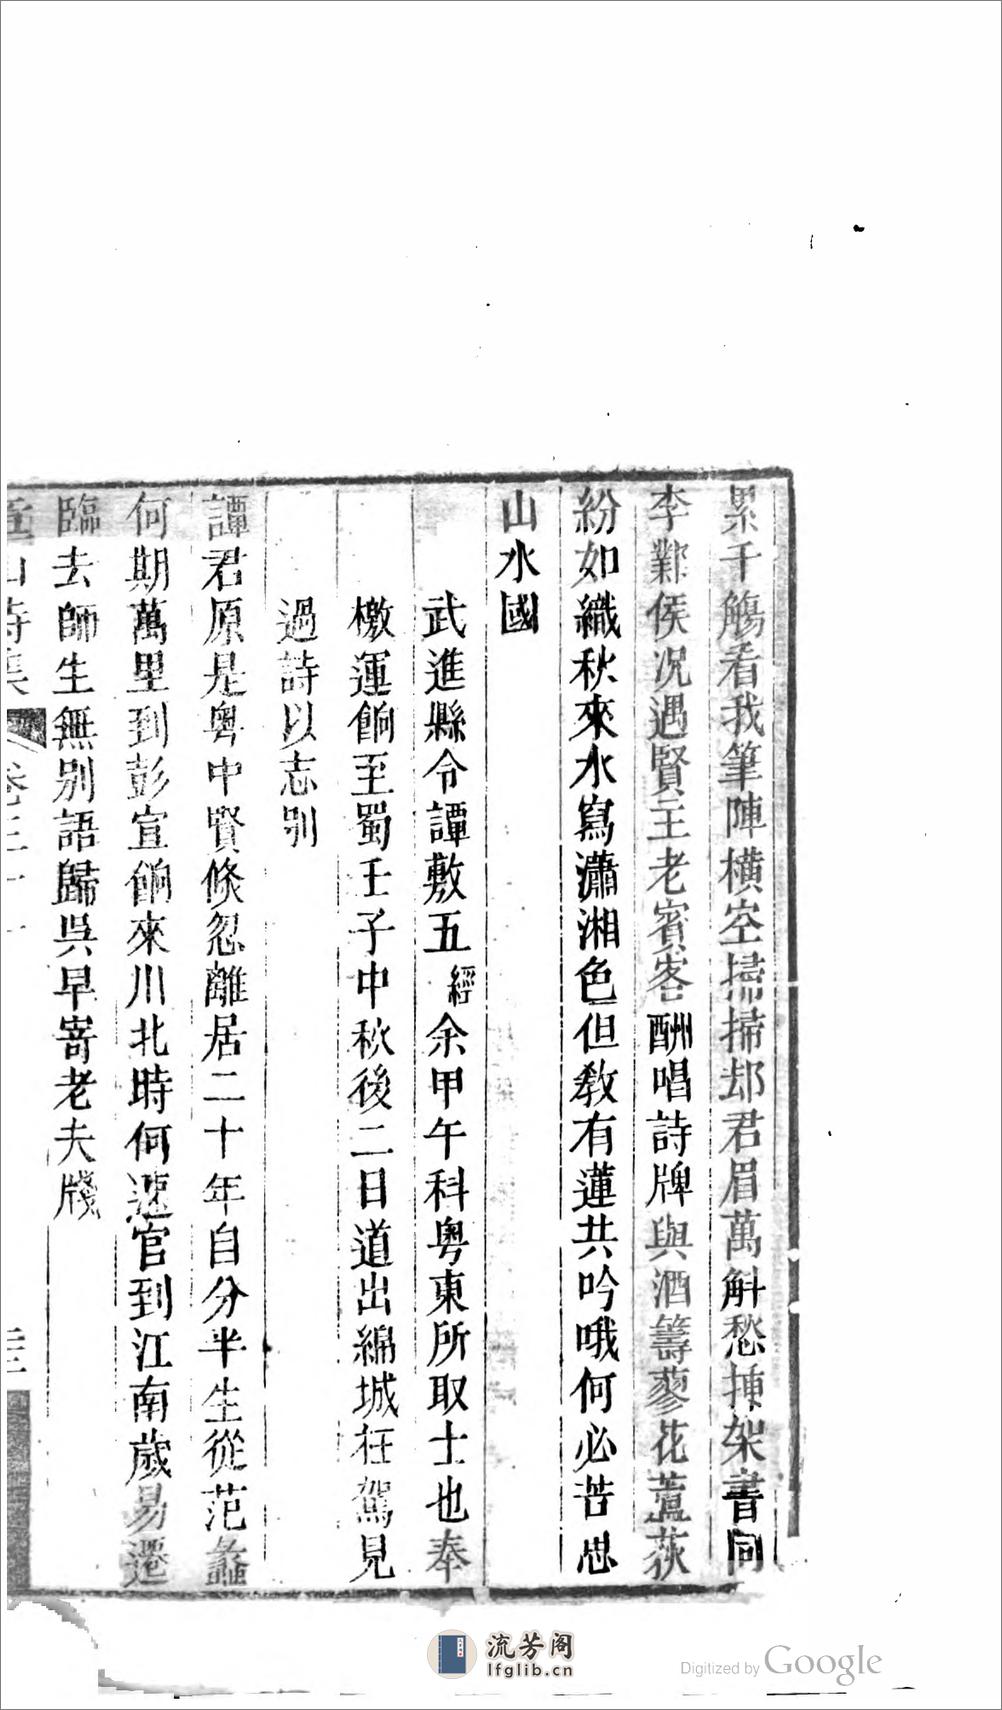 累千觴看我筆陣橫空掃掃却君眉萬斛愁揀架書同
李鄴侯況遇賢主老賓客酬唱詩牌與酒籌蓼花蘆荻
紛如織秋來水寫瀟湘色但教有蓮共吟哦何必苦思
山水國
武進縣令譚敷五經余甲午科粵東所取士也奉
檄運餉至蜀壬子中秋後二日道出綿城枉駕見
過詩以志別
譚君原是粵中賢倐忽離居二十年自分半生從范蠡
何期萬里到彭宣餉來川北時何速官到江南歲易遷
臨去師生無別語歸吳早寄老夫牋
童山詩集 卷三十一
流芳阁
lfglib.cn
Digitized by Google